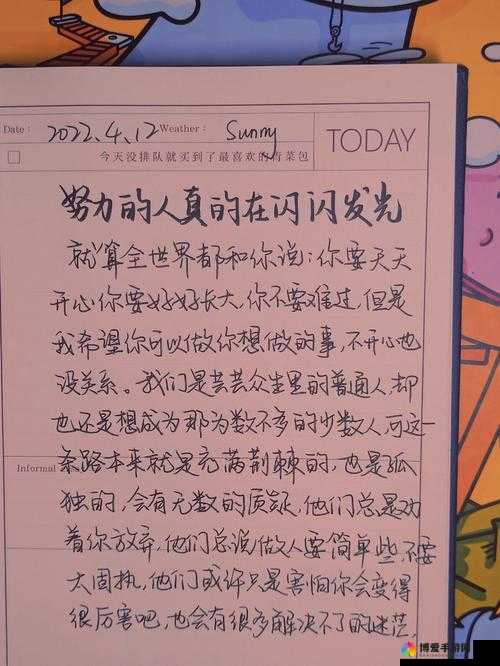 Date： 2022.4.12 Weather： Sunny
TODAY
今天没排队就买到了最喜欢的青菜包
努力的人真的在闪闪发光
就算全世界都和你说：你要天天
开心你要好好长大，你不要难过，但是
我希望你可以做你想做的事，不开心也
没关系。我们是芸芸众生里的普通人，却
也还是想成为那为数不多的少数人，可这一
条路本来就是充满荆棘的，也是孤
Informal
独的，会有无数的质疑，他们总是劝
着你放弃，他们总说做人要简单些，不要
太固执，他们或许只是害怕你会变得
很厉害吧，也会有很多解决不了的迷茫，
博爱手游网